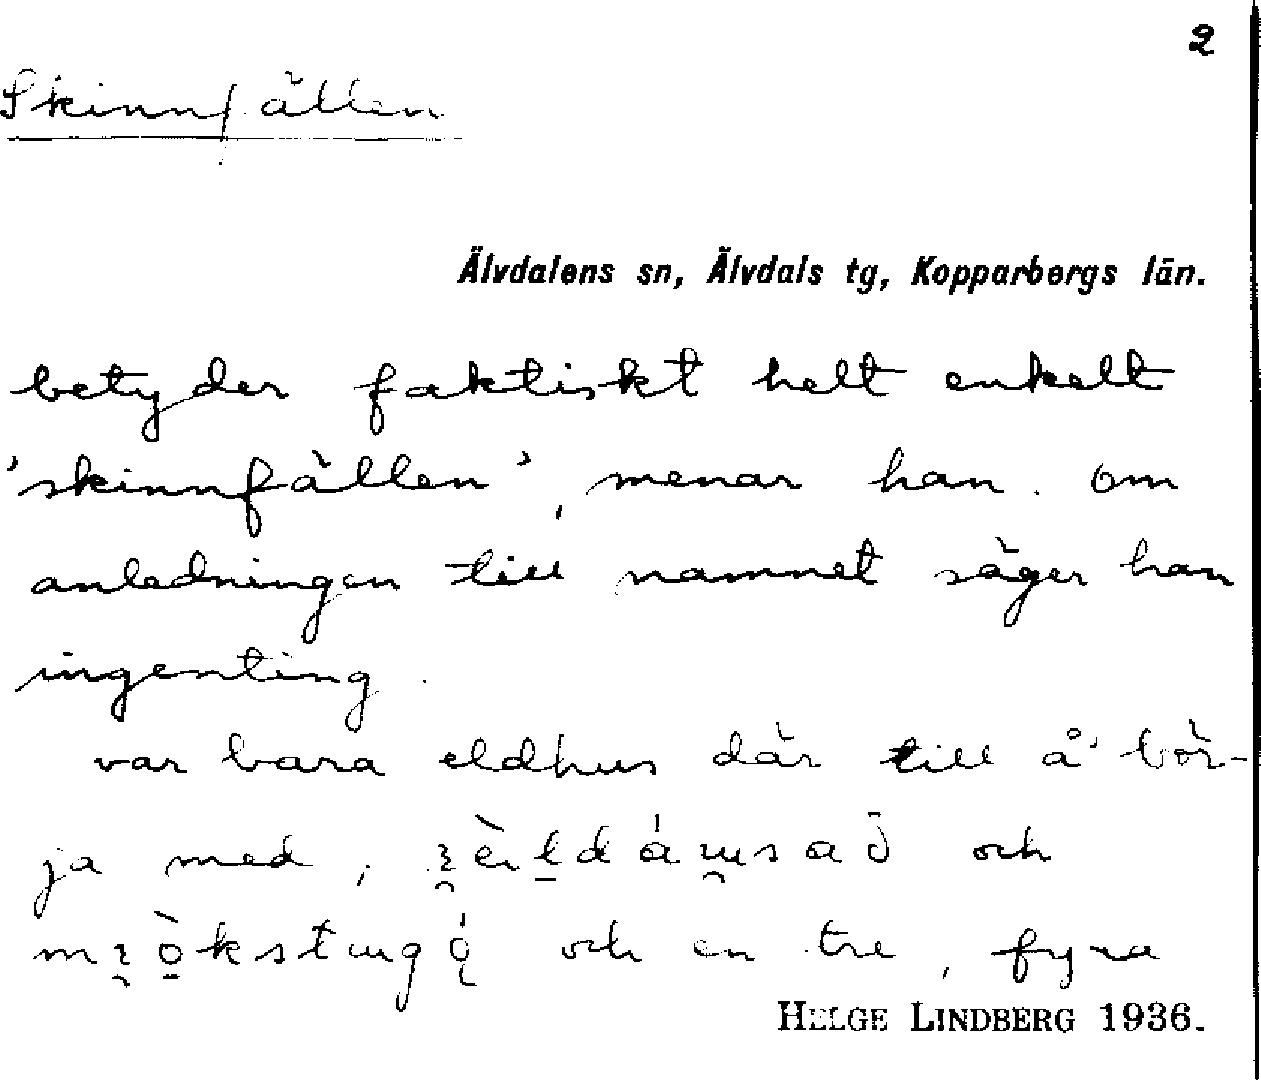 2
Skinnfällen
Älvdalens sn, Älvdals tg, Kopparbergs län.
betyder faktiskt helt enkelt
'skinnfällen', menar han. Om
anledningen till namnet säger han
ingenting.
var bara eldhus där till å' bör-
ja med, och
och en tre, fyra
HELGE LINDBERG 1936.